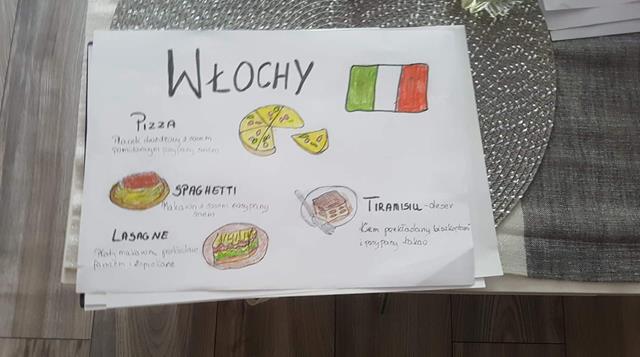 WŁOCHY
PIZZA
Placek drożdżowy z sosem
pomidorowym posypany serem
SPAGHETTI
Makaron z sosem posypany
serem
LASAGNE
Płaty makaronu przełożone
farszem i zapiekane
TIRAMISU - deser
Krem przekładany biszkoptami
i posypany kakao